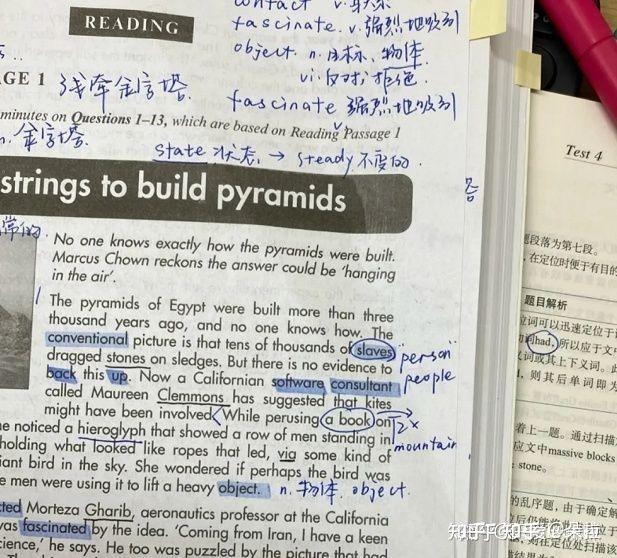 contact v.
READING
fascinate. v. 强烈地吸引
object. n. 目标, 物体
vi. 反对, 拒绝
AGE 1 线牵金字塔
fascinate 强烈地吸引
minutes on Questions 1–13, which are based on Reading Passage 1
n. 金字塔
state 状态 → steady 不变的
strings to build pyramids
答
常的
No one knows exactly how the pyramids were built.
Marcus Chown reckons the answer could be 'hanging
in the air'.
The pyramids of Egypt were built more than three
thousand years ago, and no one knows how. The
conventional picture is that tens of thousands of slaves
dragged stones on sledges. But there is no evidence to
back this up. Now a Californian software consultant
called Maureen Clemmons has suggested that kites
might have been involved. While perusing a book on
he noticed a hieroglyph that showed a row of men standing in
holding what looked like ropes that led, via some kind of
iant bird in the sky. She wondered if perhaps the bird was
e men were using it to lift a heavy object. n. 物体. object.
person
people
2x
mountain
cted Morteza Gharib, aeronautics professor at the California
was fascinated by the idea. 'Coming from Iran, I have a keen
cience,' he says. He too was puzzled by the picture that had
Test 4
题段落为第七段。
,在定位时便于有目的
题目解析
位词可以迅速定位于
had,所以应于文中
义词或其上下义词。此
,则其后单词即为
着上一题。通过扫描
应文中massive blocks
stone。
的乱序题,由于确定解
则在定位处扫描该
知乎